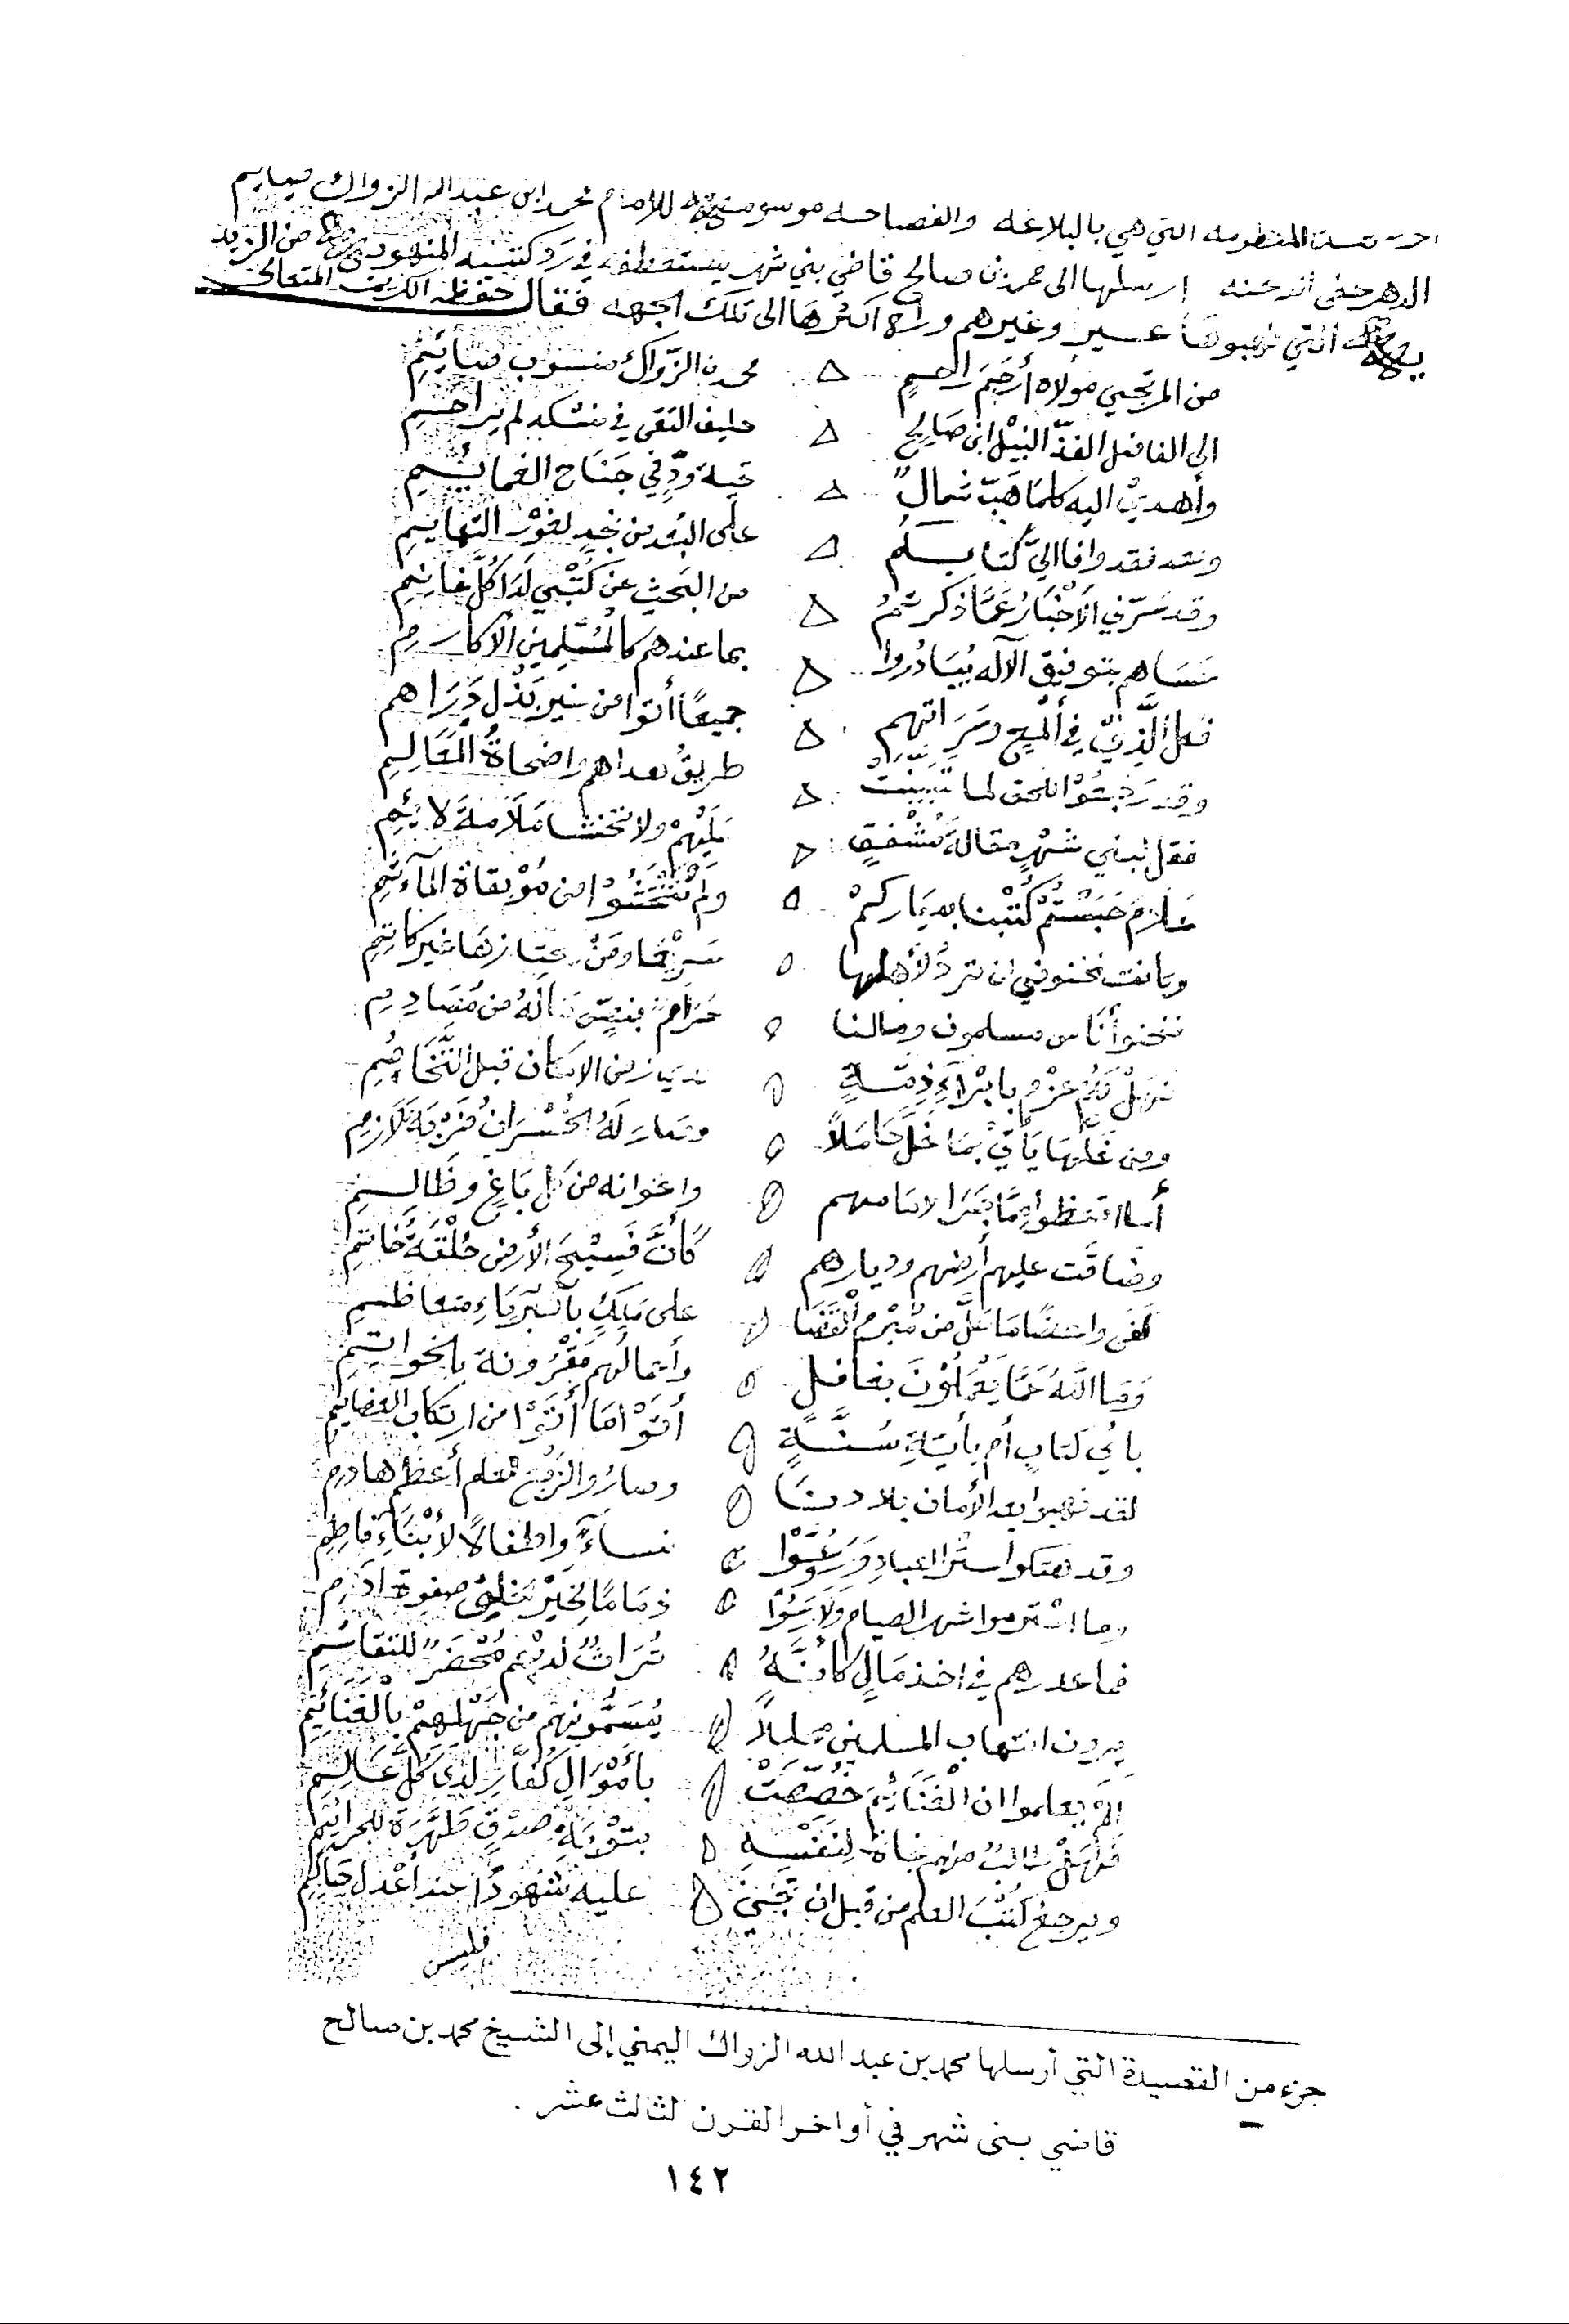 المنظومه التي هي بالبلاغه والفصاحه موسومه للامام محمد ابن عبدالله الزواك
الدهر ارسلها الى محمد بن صالح قاضي بني شهر يستعطفه في رد كتبه المنهوبه من الزيديه
التي نهبوها عسير وغيرهم وراح اكثرها الى تلك الجهه فقال حفظه الكريم المتعالي
من المرتجي مولاه أرحم راحمٍ محمد بن الزواك منسوب صائمِ
الى الفاضل الفذّ النبيل ابن صَالحٍ حليف التقى في لم يزاحمِ
وأهدي اليه كلما هَبّ شمال تحية ودّ في جناح الغمائمِ
وبعد فقد وافا اليّ كتابكم على البُعد من نجدٍ لغور التهايمِ
وقد سَرّني الأخْبارُ عَمّا ذكرتمُ من البَحثِ عن كُتْبي لدا كلّ غانمِ
عَسَاهم بتوفيق الآله يُبَادروا بما عندهم كالمُسْلِمين الأكارمِ
فعل الَّذي في ألمع وسَرَاتهم جميعًا أتوا من غير بَذْل دَرَاهم
وقد رغبوْا للحق لما تبيّنتْ طريقُ هداهم واضحاةُ المَعَالمِ
فقل لبني شهْرٍ مقالةَ مُشْفقٍ عليْهمْ ولا تخشا مَلَامةَ لائمِ
عَلَامَ حَبَسْتُمْ كُتْبنا بديَاركمْ ولم تخْتَشُوْا من مُوْبقاة المآثمِ
سَرِيْعًا ومَنْ غير كاتمِ
أُنَاس مسلمون ومالنا حَرَامٌ بنصّ من مُصَادمِ
من الامكان قبل التَّخَاصُمِ
ومن غَلّهَا يَأتيْ بمَا غَلَّ حَامِلًا وصار لَهُ الخُسْرَانُ ضَرْبَةَ لَازمِ
أما اتعظوا ممَّا جَرَا لامامهم واعوانه من كل بَاغٍ وظَالمِ
وضاقت عليهم أرضهم وديارهم كأنَّ فَسِيْحَ الأرض حَلْقَةُ خَاتمِ
على مَلِكٍ بالكبْريَاءِ متعاظمِ
وَمَا اللهُ عَمَّا يَعْمَلُوْنَ بغافلٍ وأعمالُهم مَقْرُونة بالخواتمِ
بأي كتابٍ أم بأيّة سُنَّةٍ أتَوْا مَا أتَوْا من ارتكاب العظائمِ
لقد نهبوا بعد الأمان بلادنا وصارُوا لرُبع العلم أعظم هادمِ
وقد هتكوا ستْر العبادِ وَرَوَّعُوْا نساءً واطفالًا لأبْنَاءِ فاطمِ
وما احترموا شهر الصيام ذمَامًا لخَيْر صفوة ادَمِ
فما عدرهم في اخذ مَالٍ كأنَّهُ تُرَاثٌ لديْهم مُحْضَرٌ للتقاسُمِ
يرون انتهاب المسلمين محللًا يُسَمُّونهُ من جَهْلِهمْ بالغَنَائمِ
ألم يعلموا ان الغَنَائمَ خُصّصَتْ بأمْوَال كُفَّارٍ لدى كلّ عَالمِ
فَهَلْ طالبٌ منهم نجاةً لنَفْسِهِ بتوْبَةِ صدْقٍ طهَّرَة للجرائمِ
ويرجع كُتْبَ العلم من قبل ان تجيْ عليه شهودًا عند أعْدل حاكمِ
فليس
جزء من القصيدة التي أرسلها محمد بن عبد الله الزواك اليمني إلى الشيخ محمد بن صالح
قاضي بنى شهر في أواخر القرن الثالث عشر .
١٤٢